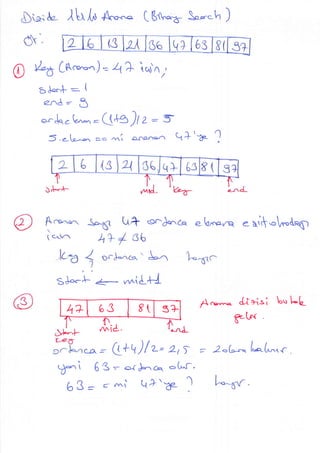 Divide
Arama (Binary Search)
Ör: 2 6 13 21 36 47 63 81 97
① Key (Aranan) = 47 için;
Start = 1
end = 9
ortadaki elem = (1+9)/2 = 5
5. eleman == mi aranan 47'ye ?
2 6 13 21 36 47 63 81 97
Start mid. key end
② Aranan Sayı 47 ortanca elemana eşit olmadığı
için 47 ≠ 36
key < ortanca'dan hayır
Start ← mid+1
3 47 63 81 97 Arama dizisi bu hale
gelir.
Start mid. end
key
ortanca = (1+4)/2 = 2,5 = 2 olarak bulunur.
yani 63 = ortanca olur.
63 == mi 47'ye ? hayır.